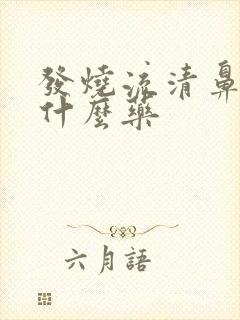 發燒流清鼻
什麼藥
六月語